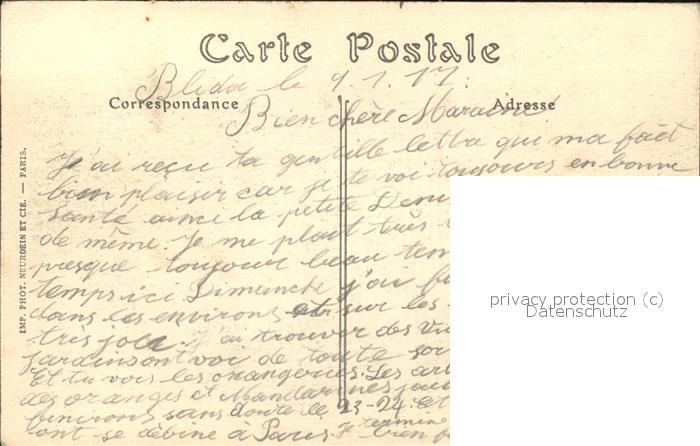 Carte Postale
Blida le 9.1.17.
Correspondance
Adresse
Bien chère Maraine
J'ai reçu ta gentille lettre qui ma fait
bien plaisir car je te voi toujours en bonne
santé ainci la petite Deni
de même. Je me plait très
presque toujour beau tem
temps ici Dimanche j'ai
dans les environs sur les
très joli J'ai trouver des
jardins ont voi de toute
Et tu vois les orangeries. Les
des oranges et Mandarines
finirons sans doute le 23-24. et
ont se débine à Paris. Je termine
bien
IMP. PHOT. NEURDEIN ET CIE. — PARIS.
privacy protection (c)
Datenschutz